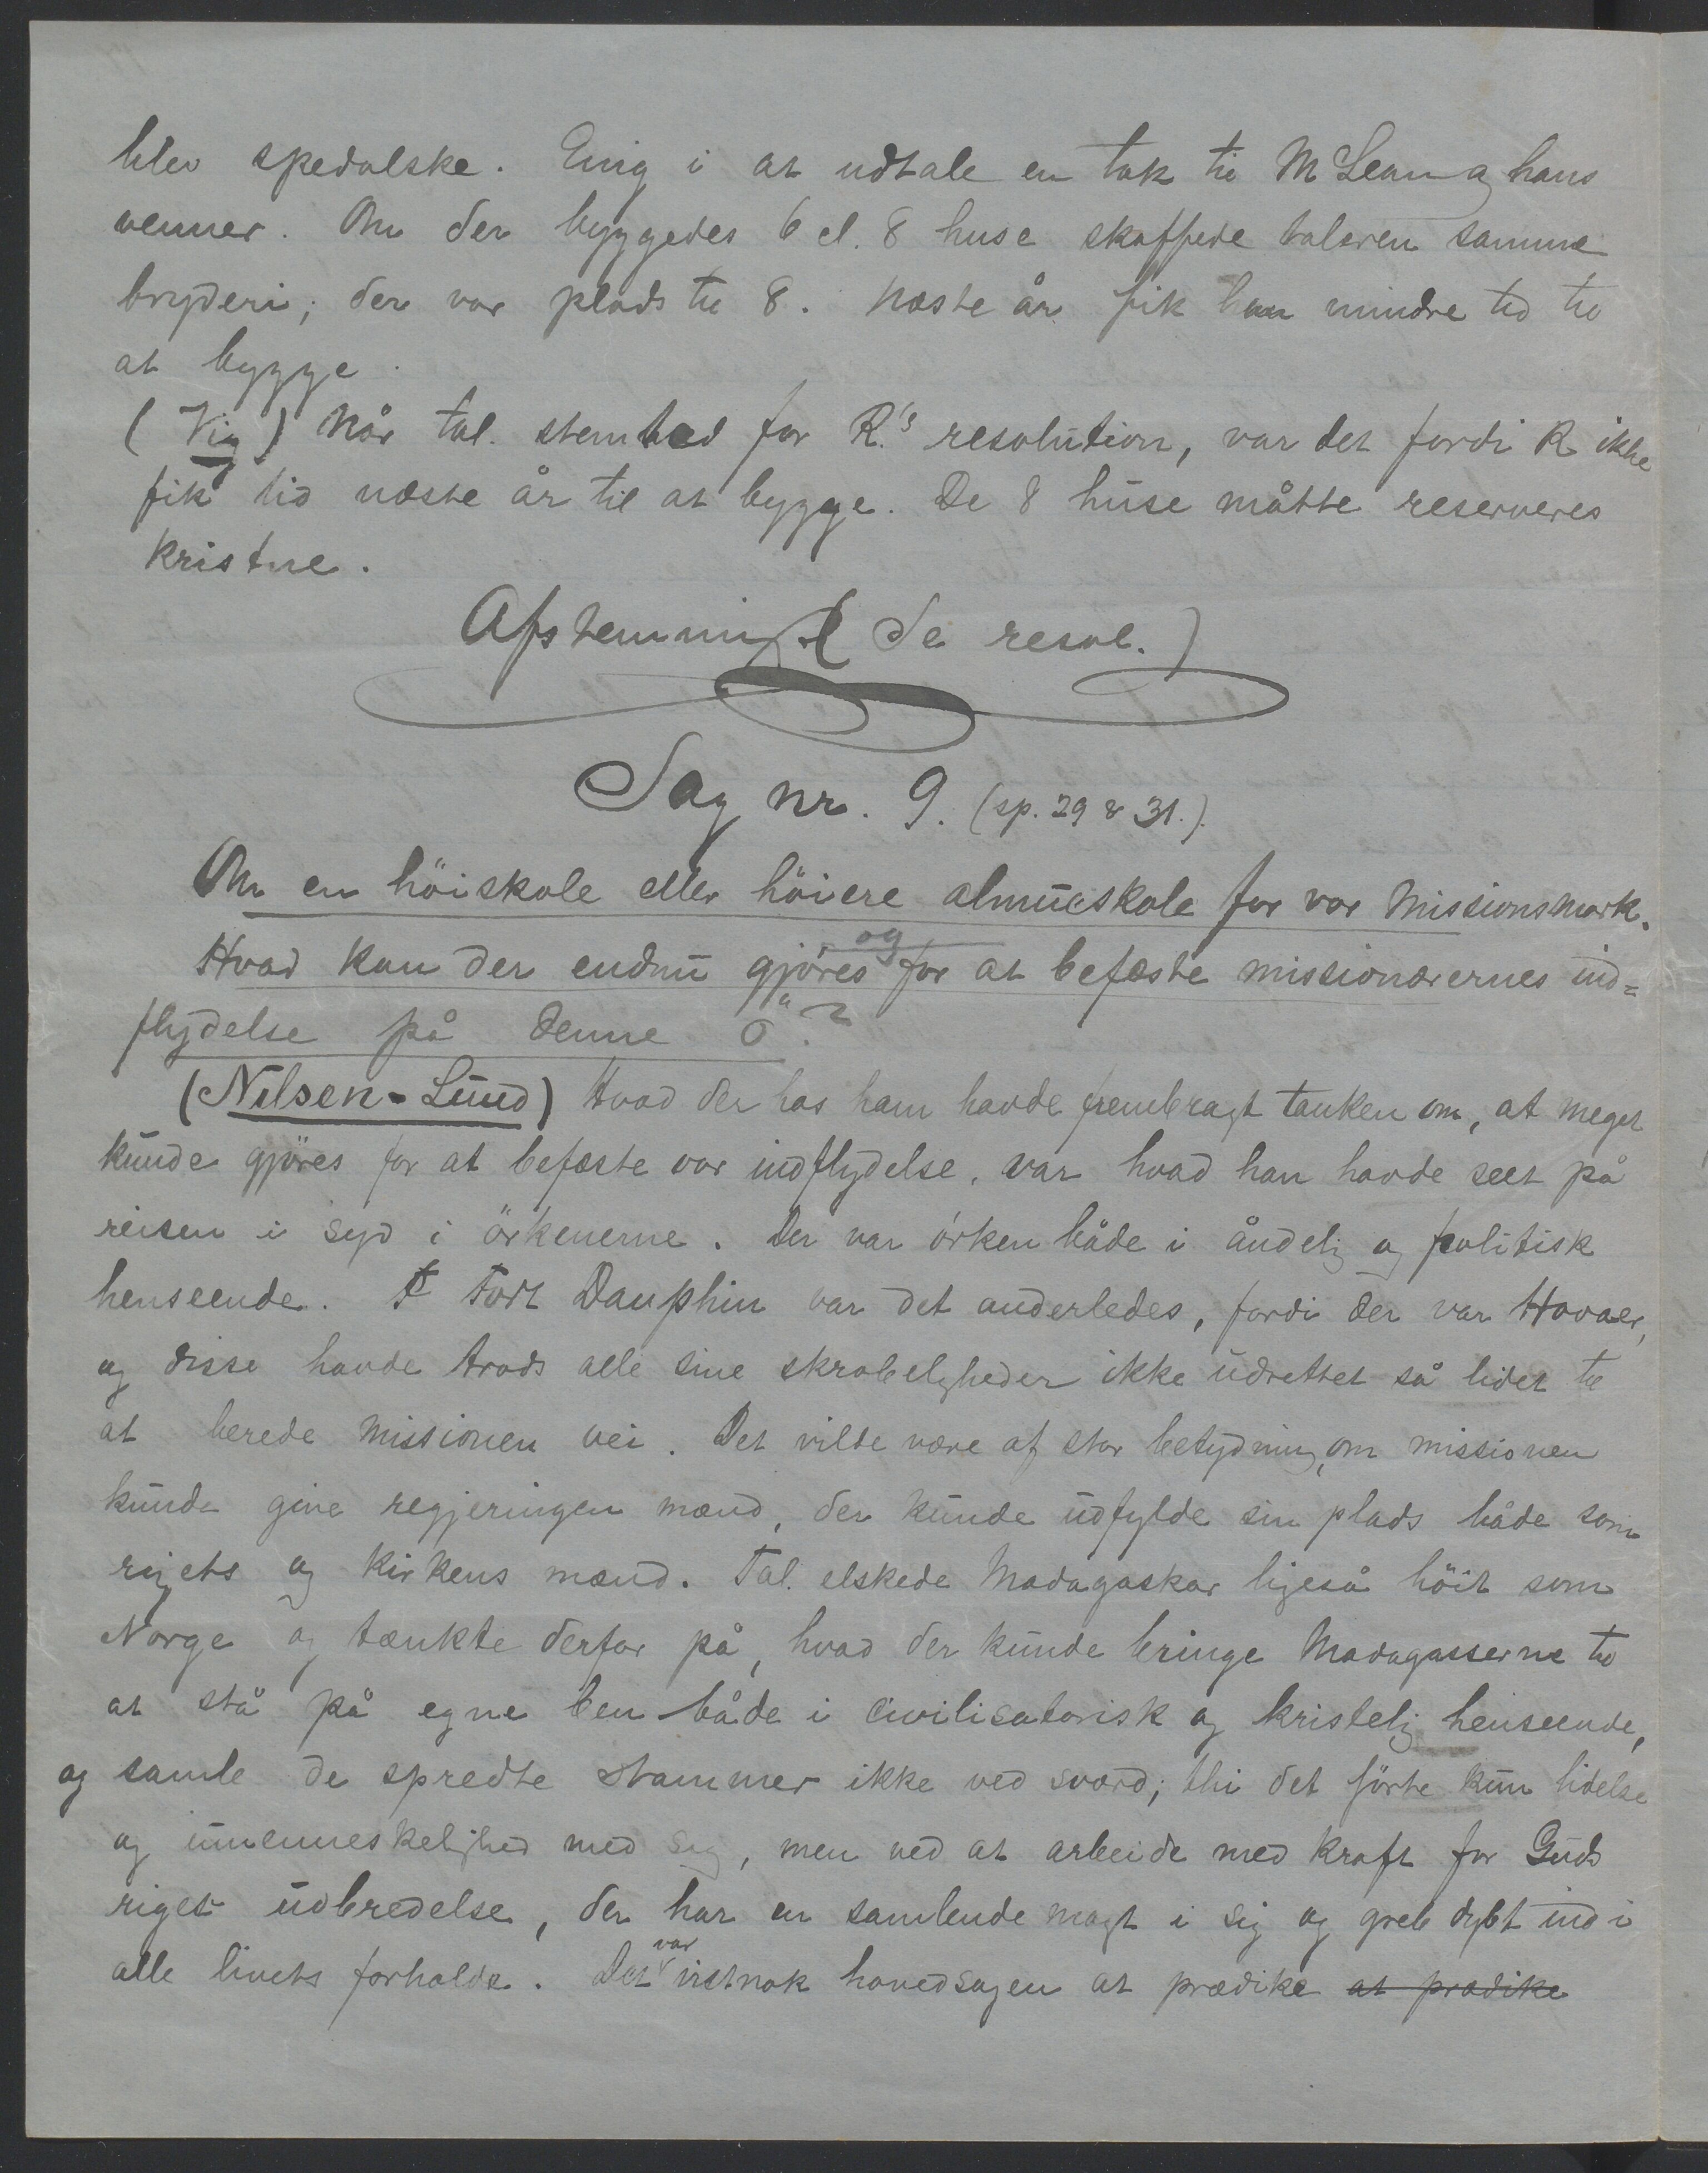 blev spedalske. Enig i at udtale en tak til McLean og hans
venner. Om der byggedes 6 el. 8 huse skaffede taleren samme
bryderi; der var plads til 8. Næste år fik han mindre tid til
at bygge.
(Vig) Når tal. stemte for R.'s resolution, var det fordi R ikke
fik tid næste år til at bygge. De 8 huse måtte reserveres
kristne.
Afstemning (se resol.)
Sag nr. 9. (sp. 29 & 31.).
Om en höiskole eller höiere almueskole for vor Missionsmark.
Hvad kan der endnu gjöres og for at befæste missionærernes ind=
flydelse på denne ö?
(Nilsen-Lund) Hvad der hos ham havde frembragt tanken om, at meget
kunde gjöres for at befæste vor indflydelse, var hvad han havde seet på
reisen i syd i örkenerne. Der var örken både i åndelig og politisk
henseende. I Fort Dauphin var det anderledes, fordi der var Hovaer,
og disse havde trods alle sine skrøbeligheder ikke udrettet så lidet til
at berede missionen vei. Det vilde være af stor betydning, om missionen
kunde give regjeringen mænd, der kunde udfylde sin plads både som
rigets og kirkens mænd. Tal. elskede Madagaskar ligeså höit som
Norge og tænkte derfor på, hvad der kunde bringe Madagasserne til
at stå på egne ben både i civilisatorisk og kristelig henseende,
og samle de spredte stammer ikke ved sværd; thi det förte kun lidelse
og umenneskelighed med sig, men ved at arbeide med kraft for Guds
riges udbredelse, der har en samlende magt i sig og greb dybt ind i
alle livets forholde. Det var vistnok hovedsagen at prædike at prædike